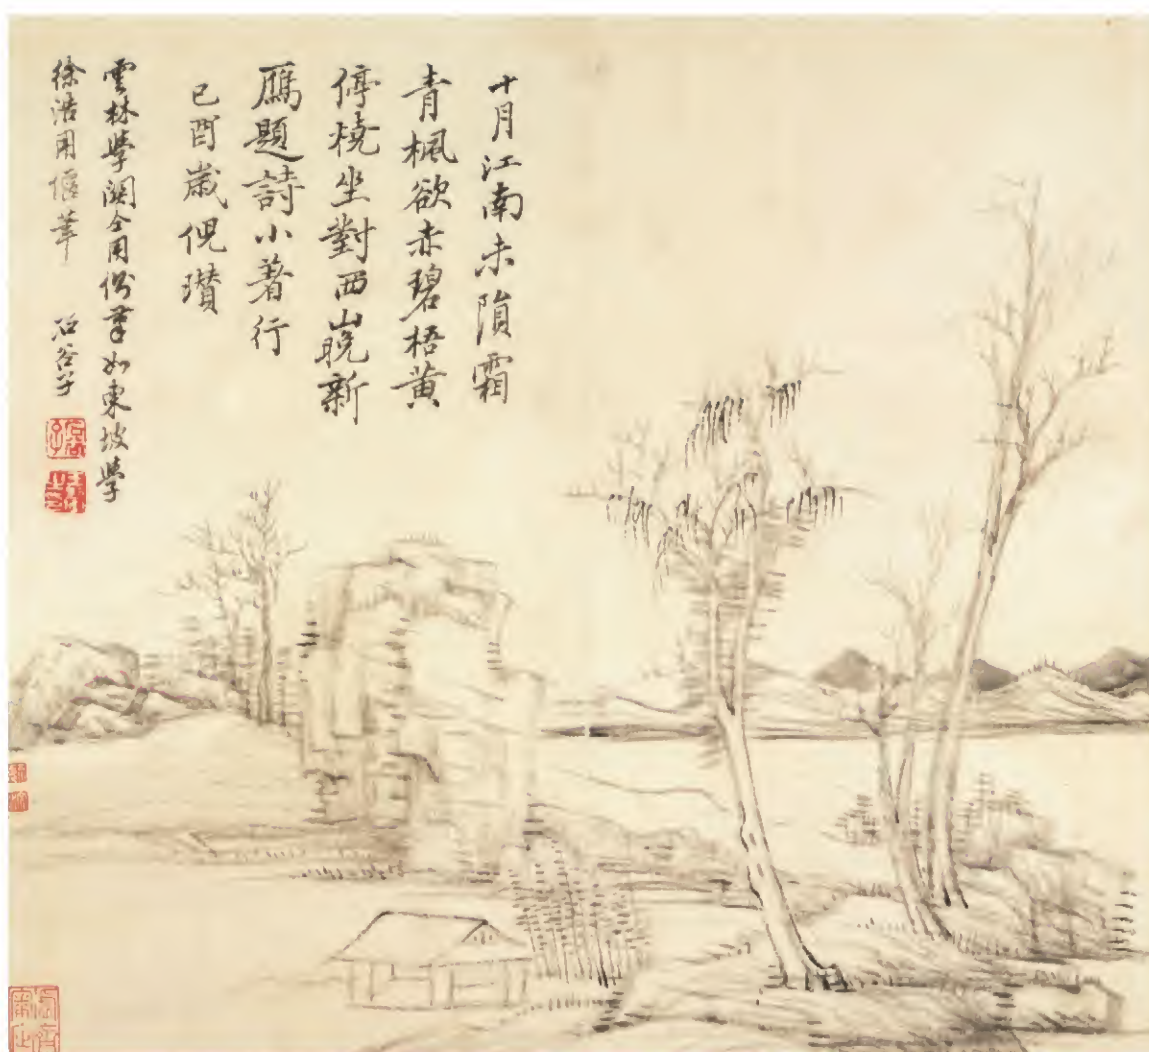 十月江南未隕霜
青楓欲赤碧梧黃
停橈坐對西山晚新
鴈題詩小著行
己酉歲倪瓚
雲林學關仝用側筆如東坡學
徐浩用偃筆 石谷子